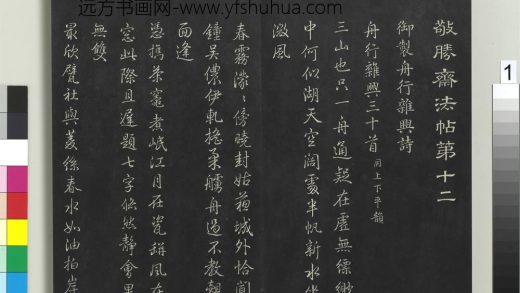 远方书画网-www.yfshuhua.com
敬勝齋法帖第十二
御製舟行雜興詩
舟行雜興三十首 用上下平韻
三山也只一舟通疑在虛無縹緲
中何似湖天空闊處半帆新水坐
微風
春霧濛〻傍曉封姑蘇城外恰聞
鐘吳儂伊軋搖柔艣舟過不教覿
面逢
憑攜茶竈煮岷江月在瓷缾風在
窗此際且遲題七字悠然靜會果
無雙
最欣甓社與菱絲春水如油拍岸
1